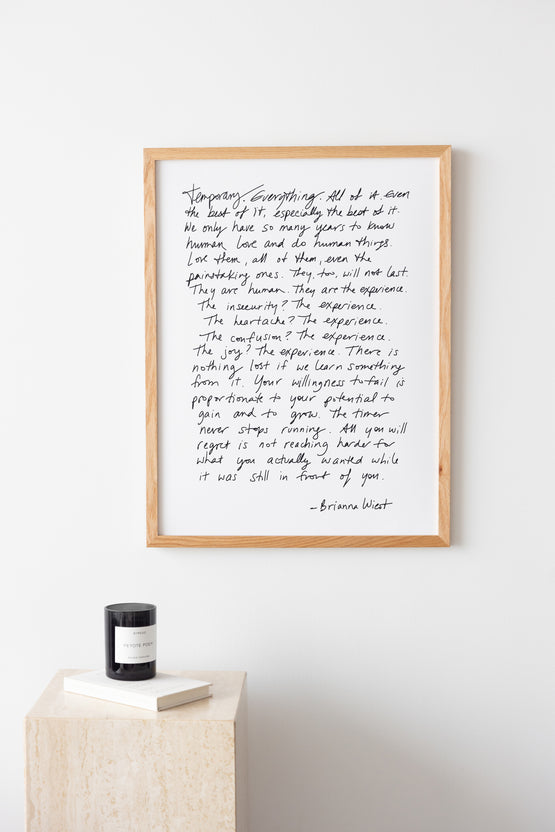 Temporary. Everything. All of it. Even
the best of it, especially the best of it.
We only have so many years to know
human love and do human things.
Love them, all of them, even the
painstaking ones. They, too, will not last.
They are human. They are the experience.
The insecurity? The experience.
The heartache? The experience.
The confusion? The experience.
The joy? The experience. There is
nothing lost if we learn something
from it. Your willingness to fail is
proportionate to your potential to
gain and to grow. The timer
never stops running. All you will
regret is not reaching harder for
what you actually wanted while
it was still in front of you.
– Brianna Wiest
BYREDO
PEYOTE POEM